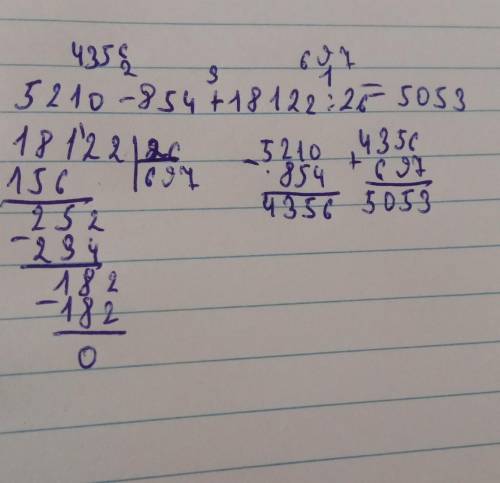 4356 697
2 3 1
5210 - 854 + 18122 : 26 = 5053
18122 | 26
156 697
252
- 234
182
- 182
0
- 5210
854
4356
+ 4356
697
5053